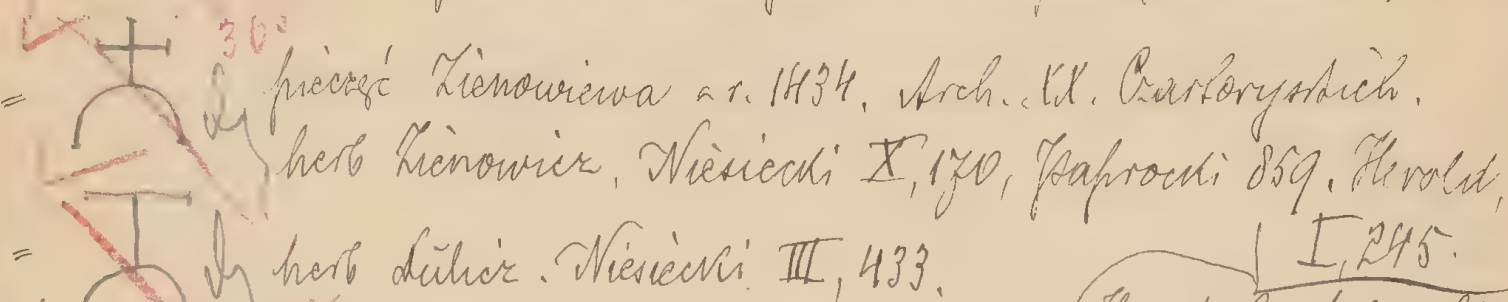 36
= pieczęć Zienowiewa a r. 1434. Arch. XX. Czartoryskich.
herb Zienowicz, Niesiecki X, 170, Paprocki 859. Herold,
I, 245.
= herb Dulicz. Niesiecki III, 433.